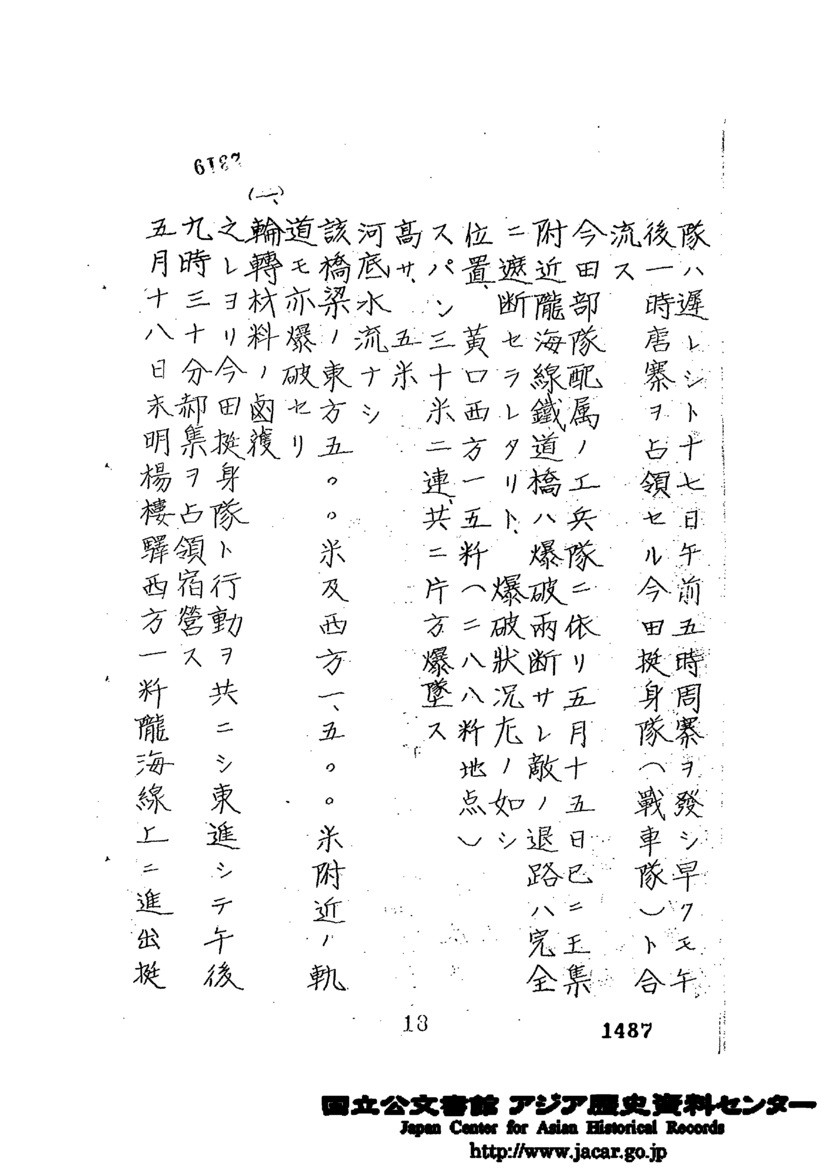 6187
隊ハ遅レシト十七日午前五時周寨ヲ發シ早クモ午
後一時唐寨ヲ占領セル今田挺身隊(戰車隊)ト合
流ス
今田部隊配属ノ工兵隊ニ依リ五月十五日已ニ王集
附近隴海線鐵道橋ハ爆破兩断サレ敵ノ退路ハ完全
ニ遮断セラレタリト、爆破狀況左ノ如シ
位置、黄口西方一五粁(二八八粁地点)
スパン三十米二連、共ニ片方爆墜ス
高サ、五米
河底水流ナシ
該橋梁ノ東方五〇〇米及西方一、五〇〇米附近ノ軌
道モ亦爆破セリ
(一、)輪轉材料ノ鹵獲
之レヨリ今田挺身隊ト行動ヲ共ニシ東進シテ午後
九時三十分郝集ヲ占領宿營ス
五月十八日未明楊樓驛西方一粁隴海線上ニ進出挺
13
1487
国立公文書館 アジア歴史資料センター
Japan Center for Asian Historical Records
http://www.jacar.go.jp